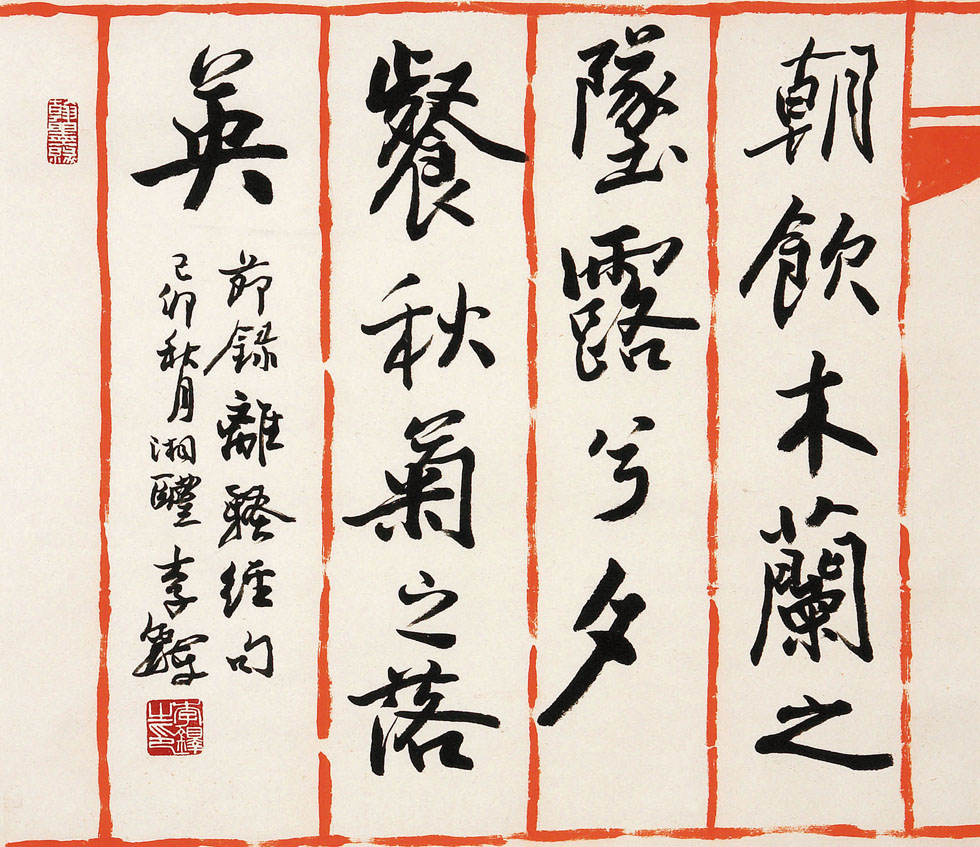 朝飲木蘭之
墜露兮夕
餐秋菊之落
英
節録離騷經句
己卯秋月湘醴李鐸
李鐸之印